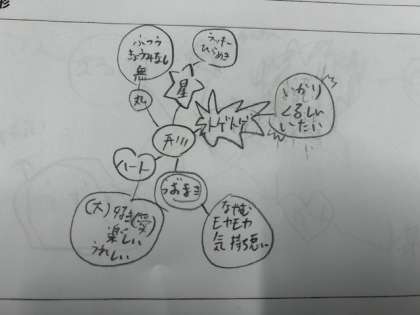 ふつう
きょうみなし
無
丸
ラッキー
ひらめき
星
トゲトゲ
いかり
くるしい
いたい
ハート
うずまき
(大)好き(愛)
楽しい
うれしい
なやむ
モヤモヤ
気持ち悪い
形